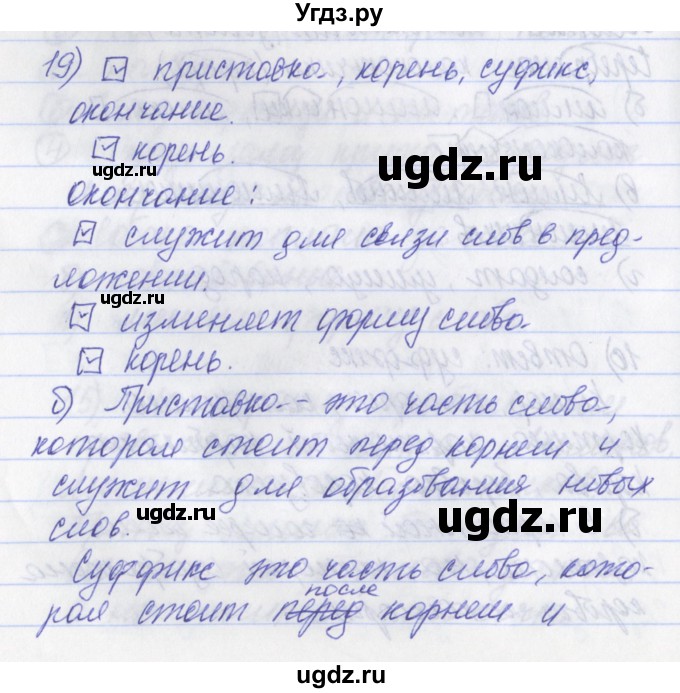 Угдз.ру
19) ☑ приставка, корень, суфикс,
окончание.
☑ корень.
ugdz.ru
окончание:
☑ служит для связи слов в пред-
ложении.
ugdz.ru
☑ изменяет форму слова
☑ корень.
ugdz.ru
б) Приставка - это часть слова,
которая стоит перед корнем и
служит для образования новых
слов.
ugdz.ru
ugdz.ru
Суффикс это часть слова, кото-
после
рая стоит перед корнем и
ugdz.ru
ugdz.ru